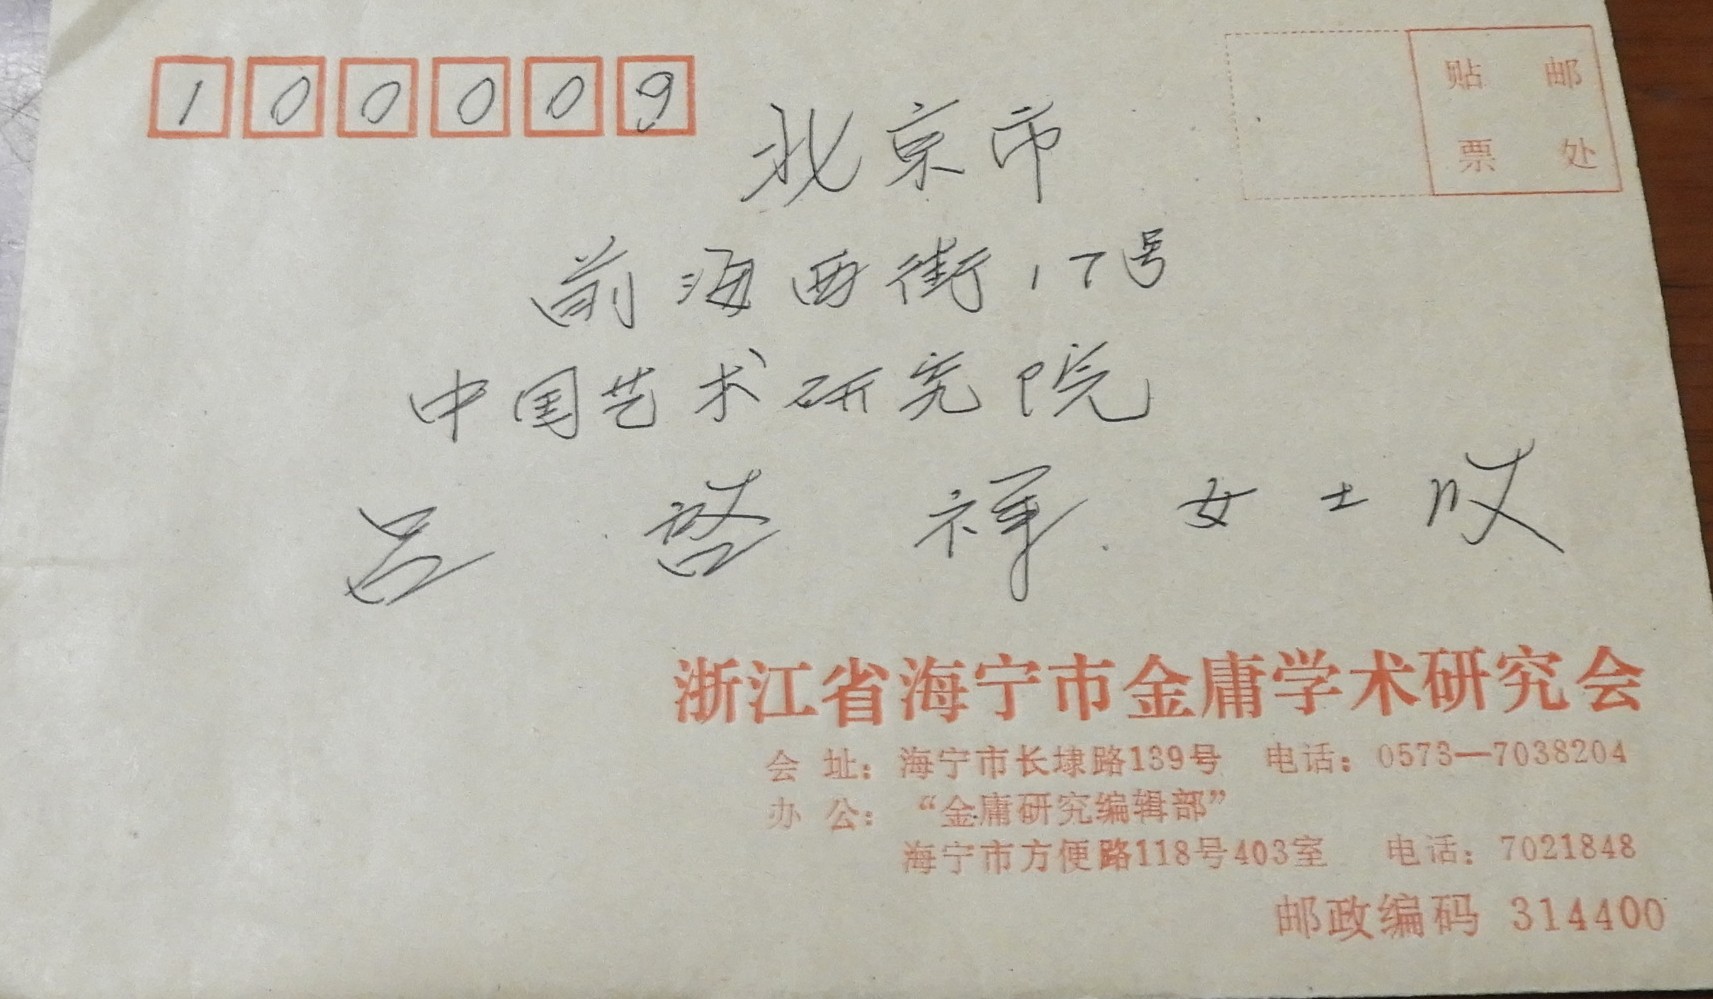 100009
贴邮
票处
北京市
前海西街17号
中国艺术研究院
吕啓祥 女士收
浙江省海宁市金庸学术研究会
会 址：海宁市长埭路139号 电话：0573—7038204
办 公：“金庸研究编辑部”
海宁市方便路118号403室 电话：7021848
邮政编码 314400